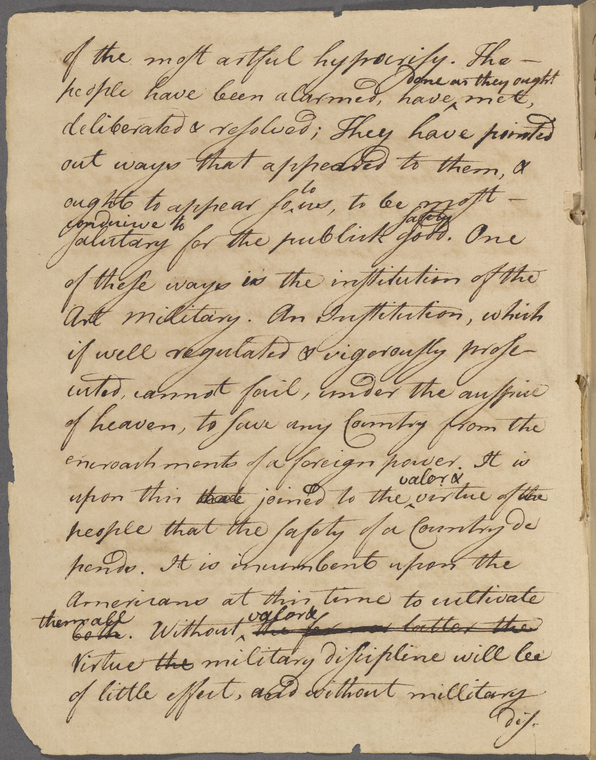 of the most artful hypocrisy. The —
done as they ought
people have been alarmed, have ^ met,
deliberated & resolved; They have pointed
out ways that appeared to them, &
ought to appear so ^ to us, to be most —
conduive to safety
salutary for the publick good. One
of these ways is the institution of the
Art military. An Institution, which
if well regulated & vigorously prose-
cuted, cannot fail, under the auspice
of heaven, to save any Country from the
encroachments of a foreign power. It is
valor &
upon this that joined to the ^ virtue of the
people that the safety of a Country de
pends. It is incumbent upon the
Americans at this time to cultivate
them all valor &
both. Without ^ the former latter the
Virtue the military discipline will be
of little effect, and without millitary
dis-